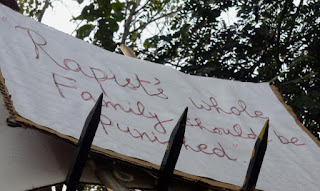 "Rapist's whole
Family should be
punished"